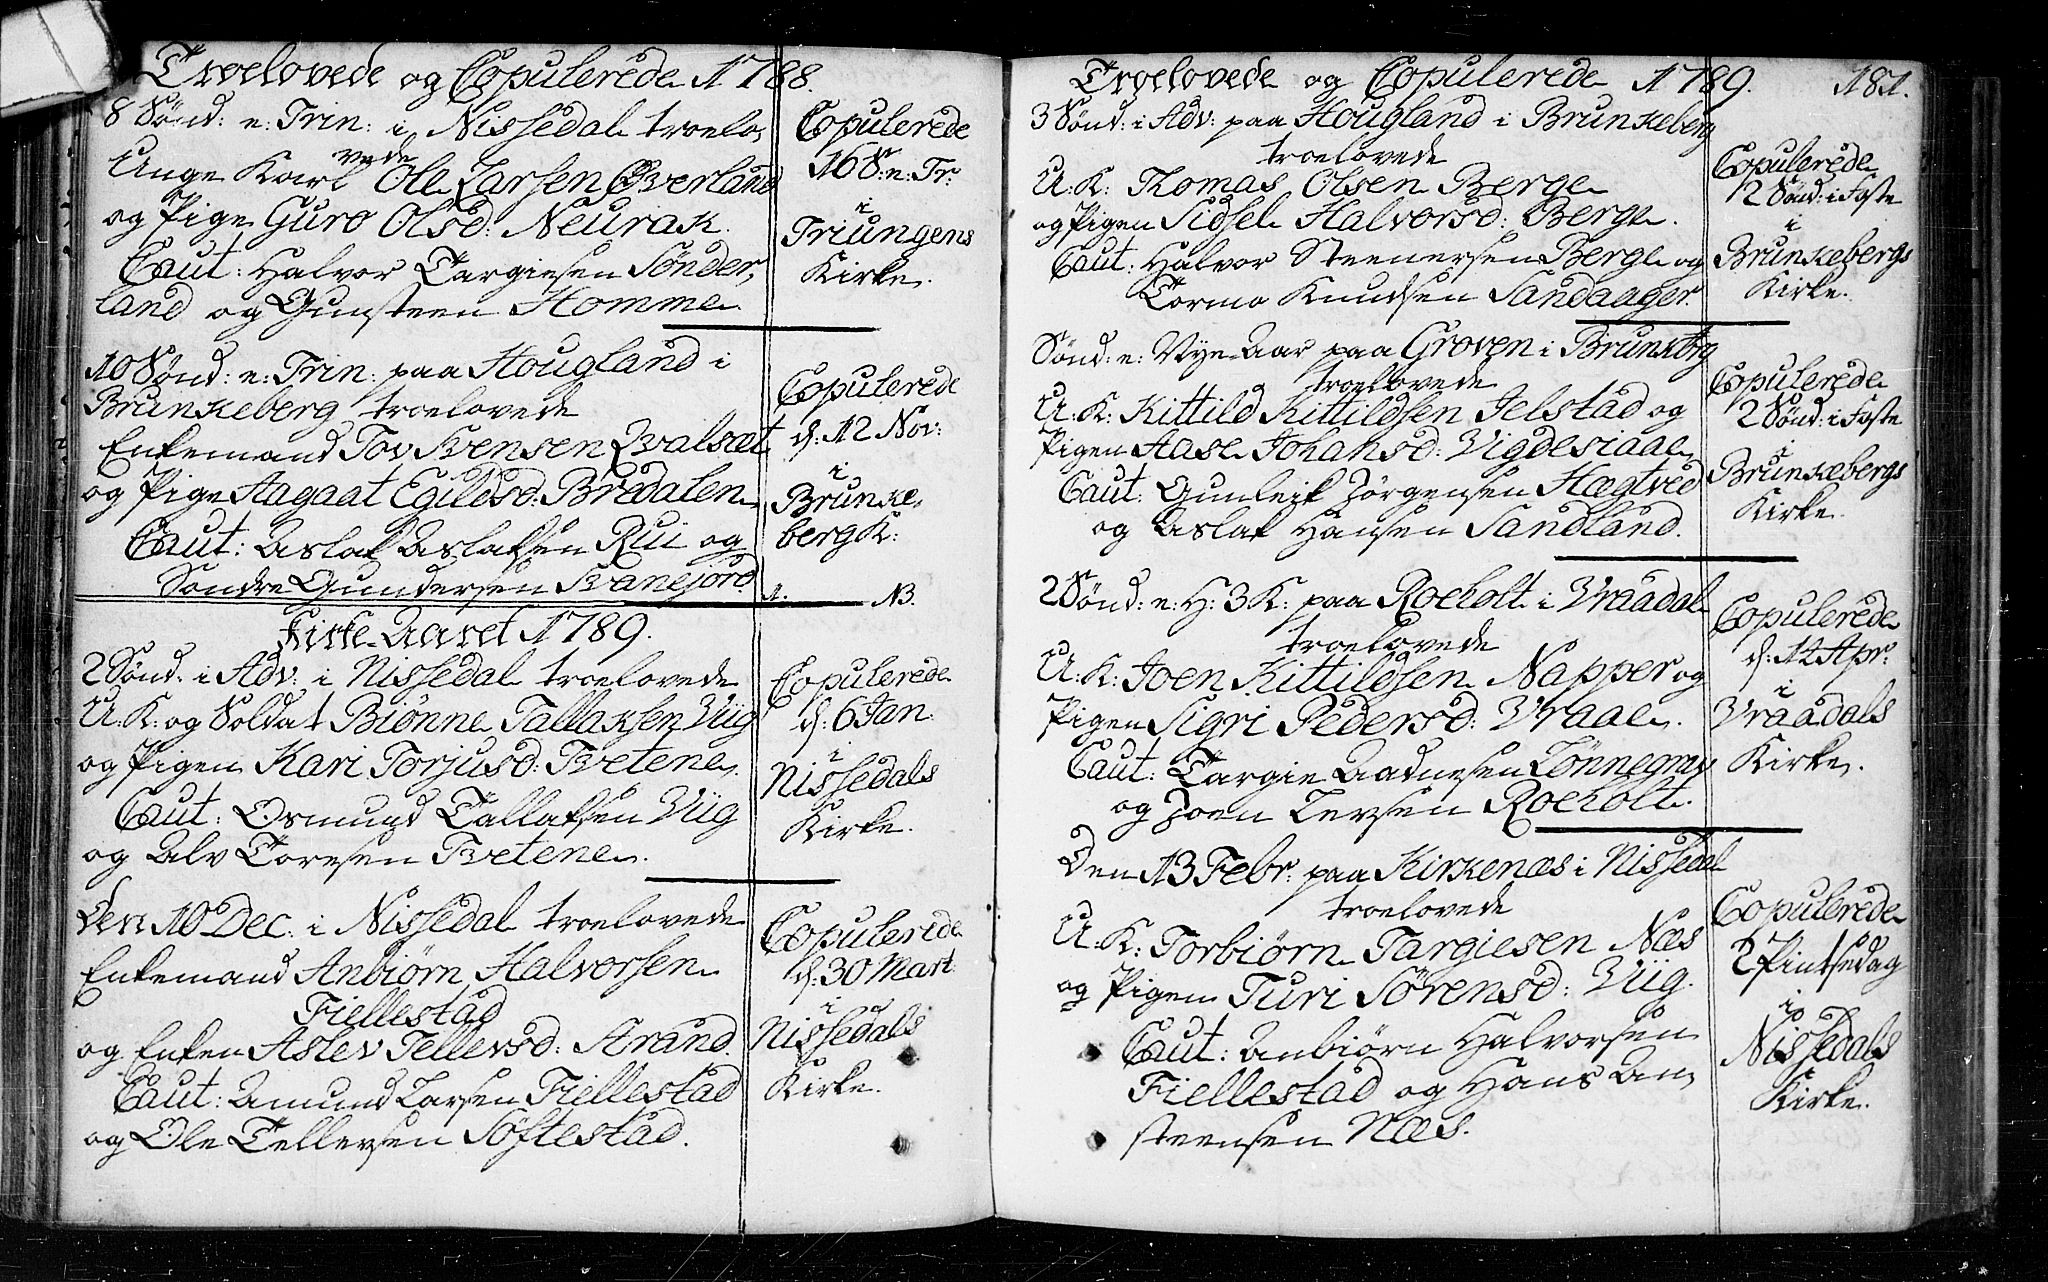 Troelovede og Copulerede 1788.
8 Sønd: e: Trin: i Nissedal troelo,
vede
Unge Karl Ole Larsen Øverland
og Pige Guro Olsd: Neurak.
Caut: Halvor Targiesen Sønder,
land og Gunsteen Homme.
Copulerede
16 S: e: Tr:
i
Triungens
Kirke.
10 Sønd: e: Trin: paa Hougland i
Brunkeberg troelovede
Enkemand Tov Svensen Qvalsæt
og Pige Aagaat Egildsd: Brødalen
Caut: Aslak Aslaksen Rui og
Søndre Gundersen Svanejord
Copulerede
d: 12 Nov:
i
Brunke,
berg K:
1. NB.
Kirke-Aaret 1789.
2 Sønd: i Adv: i Nissedal troelovede
U: K: og Soldat Biønne Tallaksen Viig
og Pigen Kari Torjusd: Tvetene.
Caut: Osmund Tallaksen Viig
og Alv Toresen Tvetene.
Copulerede
d: 6 Jan:
i
Nissedals
Kirke.
Den 10 Dec: i Nissedal troelovede
Enkemand Anbiørn Halvorsen
Fiellestad
og Enken Aslev Tellevsd: Strand.
Caut: Amund Larsen Fiellestad
og Ole Tellevsen Søftestad.
Copulerede
d: 30 Mart:
i
Nissedals
Kirke.
Troelovede og Copulerede 1789. 181.
3 Sønd: i Adv: paa Hougland i Brunkeberg
troelovede
U: K: Thomas Olsen Berge
og Pigen Sidsel Halvorsd: Berge.
Caut: Halvor Steenersen Berge og
Tormo Knudsen Sandaager.
Copulerede
2 Sønd: i Faste
i
Brunkebergs
Kirke.
Sønd: e: Nye-Aar paa Groven i Brunkbrg
troelovede
U: K: Kittild Kittildsen Jelstad og
Pigen Aase Johansd: Vigdesiaae
Caut: Gunleik Jørgensen Hægtved
og Aslak Hansen Sandland.
Copulerede
2 Sønd: i Faste
i
Brunkebergs
Kirke.
2 Sønd: e: H: 3 K: paa Roeholt i Vraadal
troelovede
U: K: Joen Kittildsen Napper og
Pigen Sigri Pedersd: Vraae.
Caut: Targie Aadnesen Lønnegrav
og Joen Iversen Roeholt.
Copulerede
d: 12 Apr:
i
Vraadals
Kirke.
Den 13 Febr: paa Kirkenæs i Nissedal
troelovede
U: K: Torbiørn Targiesen Næs
og Pigen Turi Sørensd: Viig.
Caut: Anbiørn Halvorsen
Fiellestad og Hans An,
steensen Næs.
Copulerede
2 Pintsedag
i
Nissedals
Kirke.